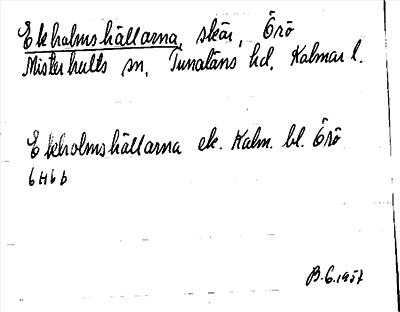 Ekholmshällarna, skär, Örö
Misterhults sn, Tunaläns hd, Kalmar l.
Ekholmshällarna ek. Kalm. bl. Örö
6H6b
B.G.1957